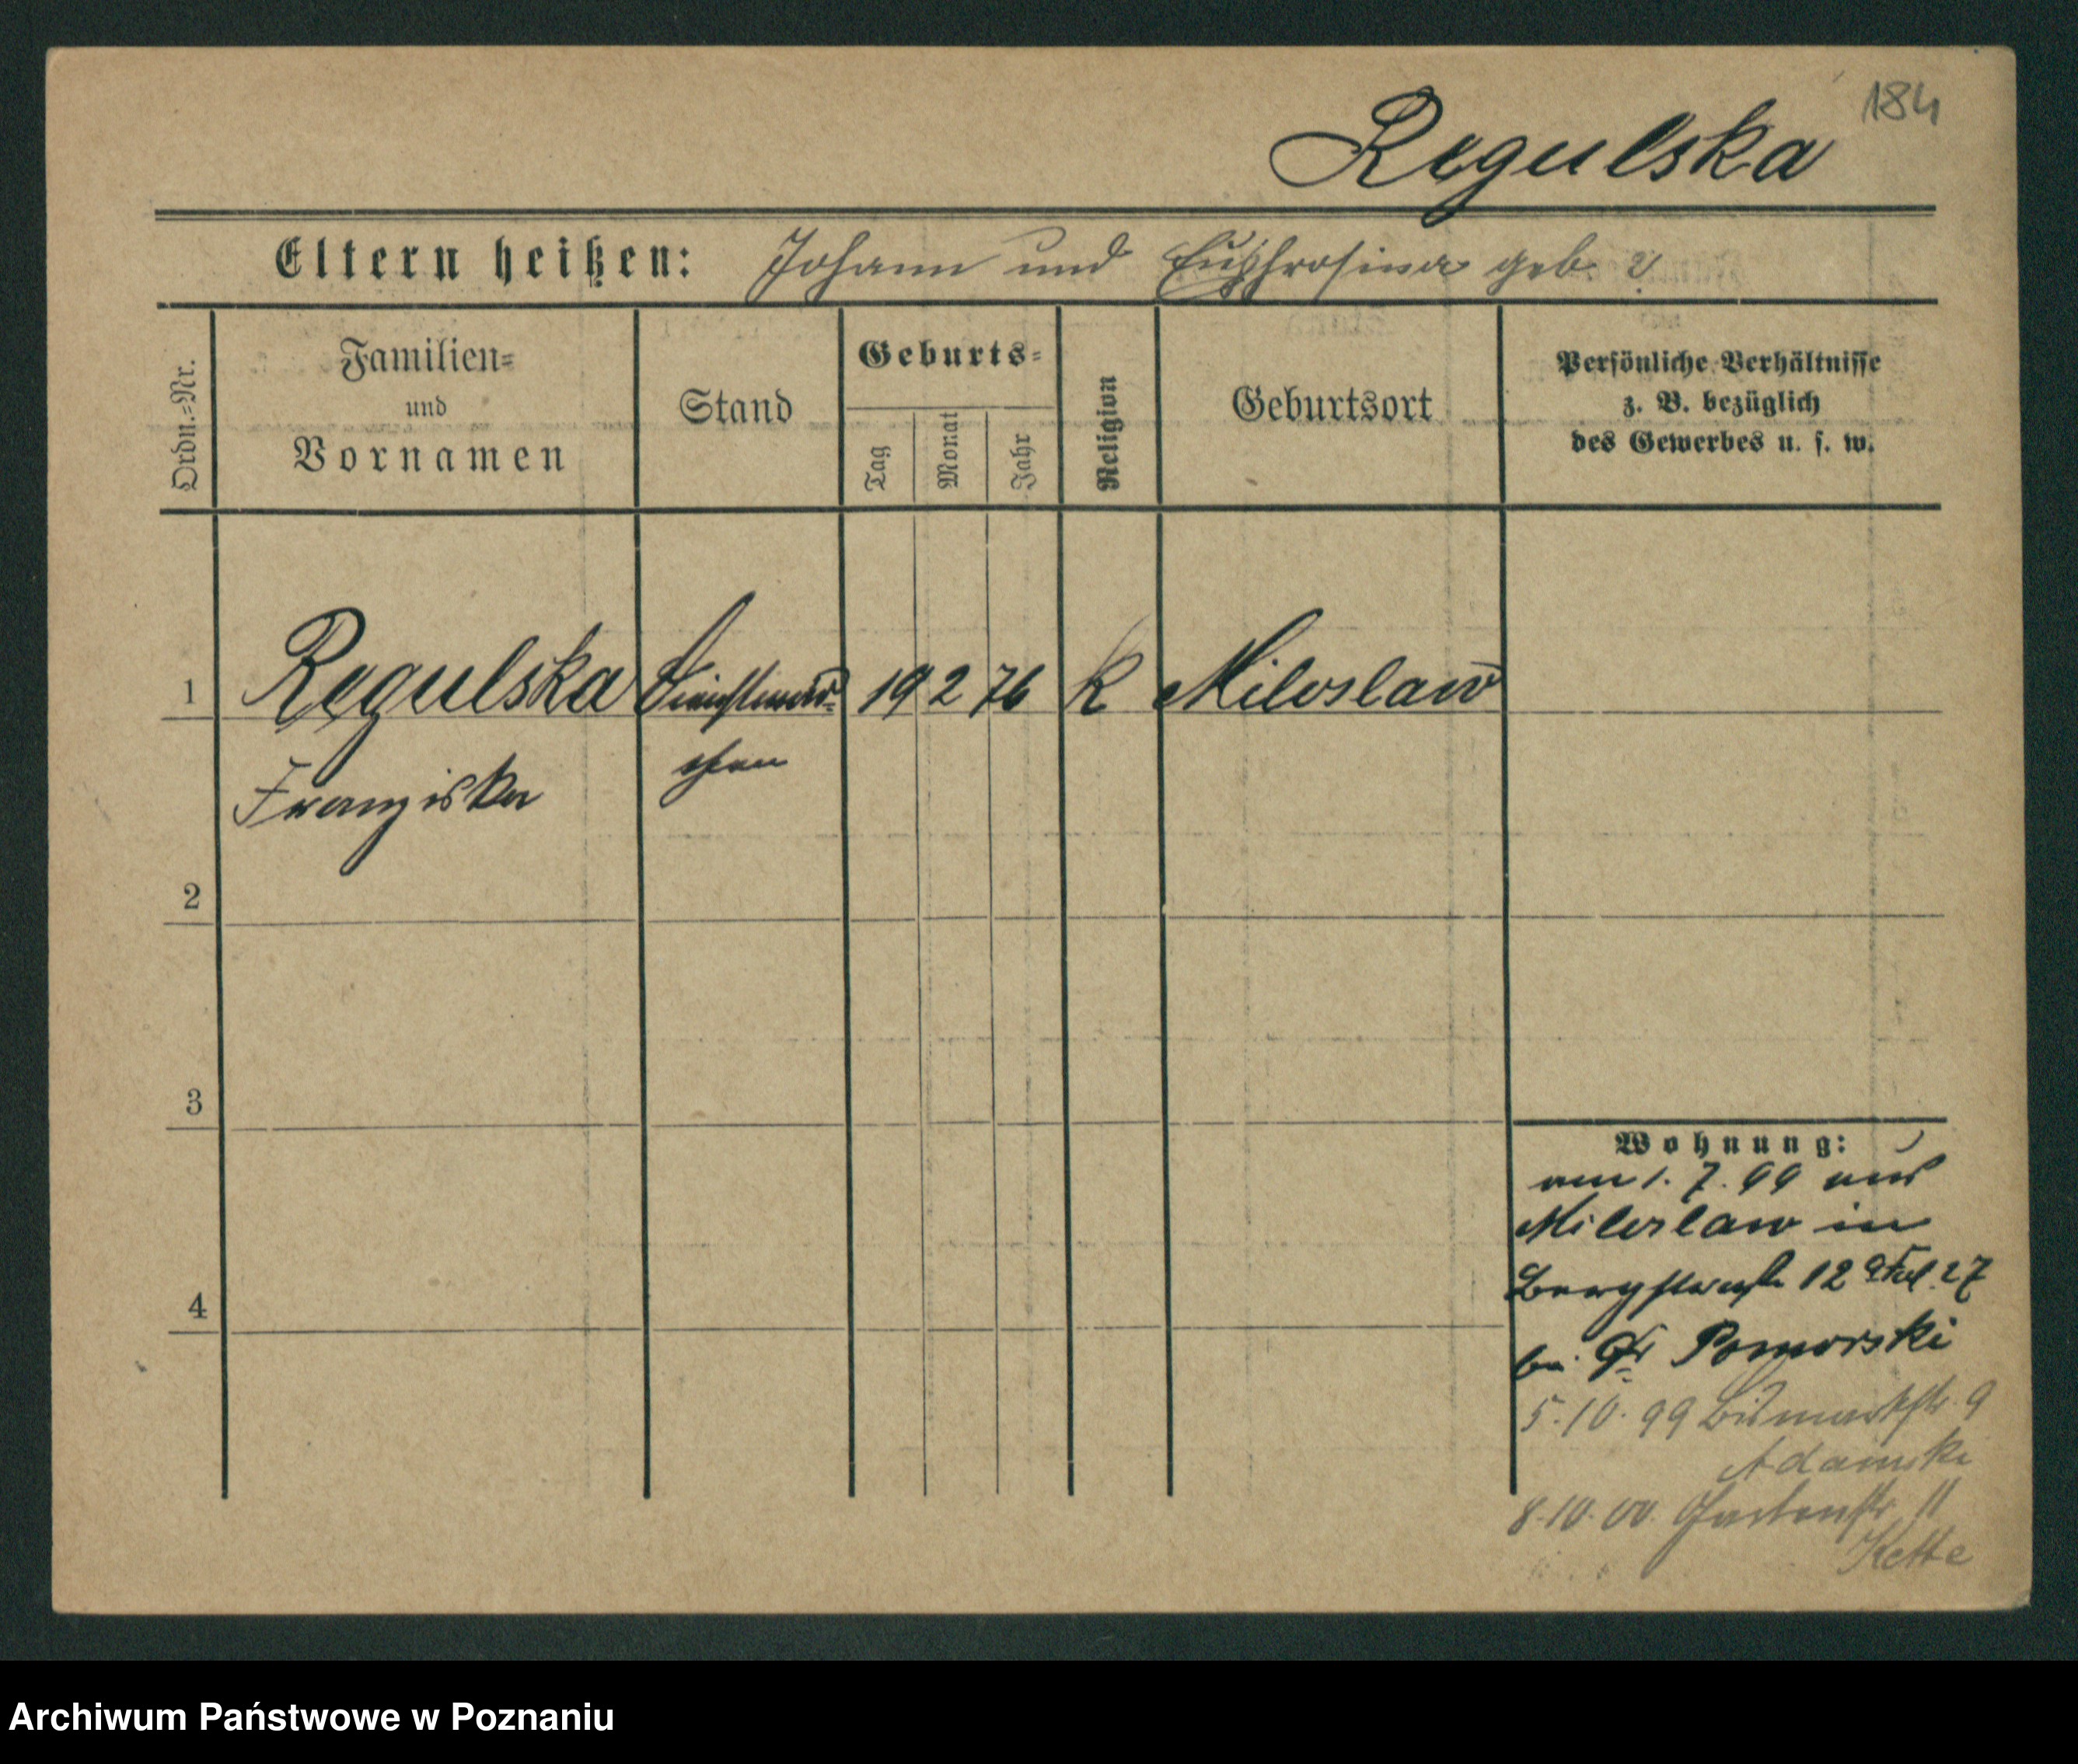 184
Regulska
Eltern heißen: Johann und Euphrosina geb. ?
Ordn.=Nr.
Familien=
und
Vornamen
Stand
Geburts=
Tag
Monat
Jahr
Religion
Geburtsort
Persönliche Verhältnisse
z. B. bezüglich
des Gewerbes u. s. w.
1 Regulska Dienstmäd= 19 2 76 k Miloslaw
Franziska chen
2
3
4
Wohnung:
am 1. 7. 99 aus
Miloslaw in
Bergstraße 12 27
bei Dr Pomorski
5.10.99 Bismarkstr. 9
Adamski
8.10.00. Gartenstr. 11
Kette
Archiwum Państwowe w Poznaniu